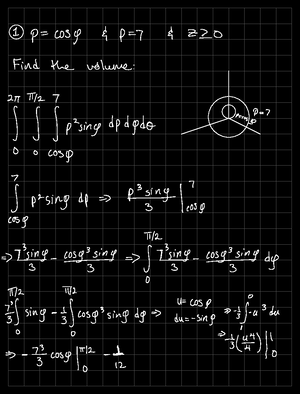 ① ρ = cosφ & ρ=7 & z≥0
Find the volume:
∫₀^2π ∫₀^π/2 ∫_cosφ^7 ρ² sinφ dρ dφ dθ
ρ=7
∫_cosφ^7 ρ² sinφ dρ ⇒ ρ³ sinφ / 3 |_cosφ^7
⇒ 7³ sinφ / 3 - cosφ³ sinφ / 3 ⇒ ∫₀^π/2 7³ sinφ / 3 - cosφ³ sinφ / 3 dφ
7³/3 ∫₀^π/2 sinφ - 1/3 ∫₀^π/2 cosφ³ sinφ dφ ⇒ u = cosφ ⇒ -1/3 ∫₁⁰ -u³ du
du = -sinφ ⇒ 1/3 (u⁴/4) |₀¹
⇒ - 7³/3 cosφ |₀^π/2 - 1/12